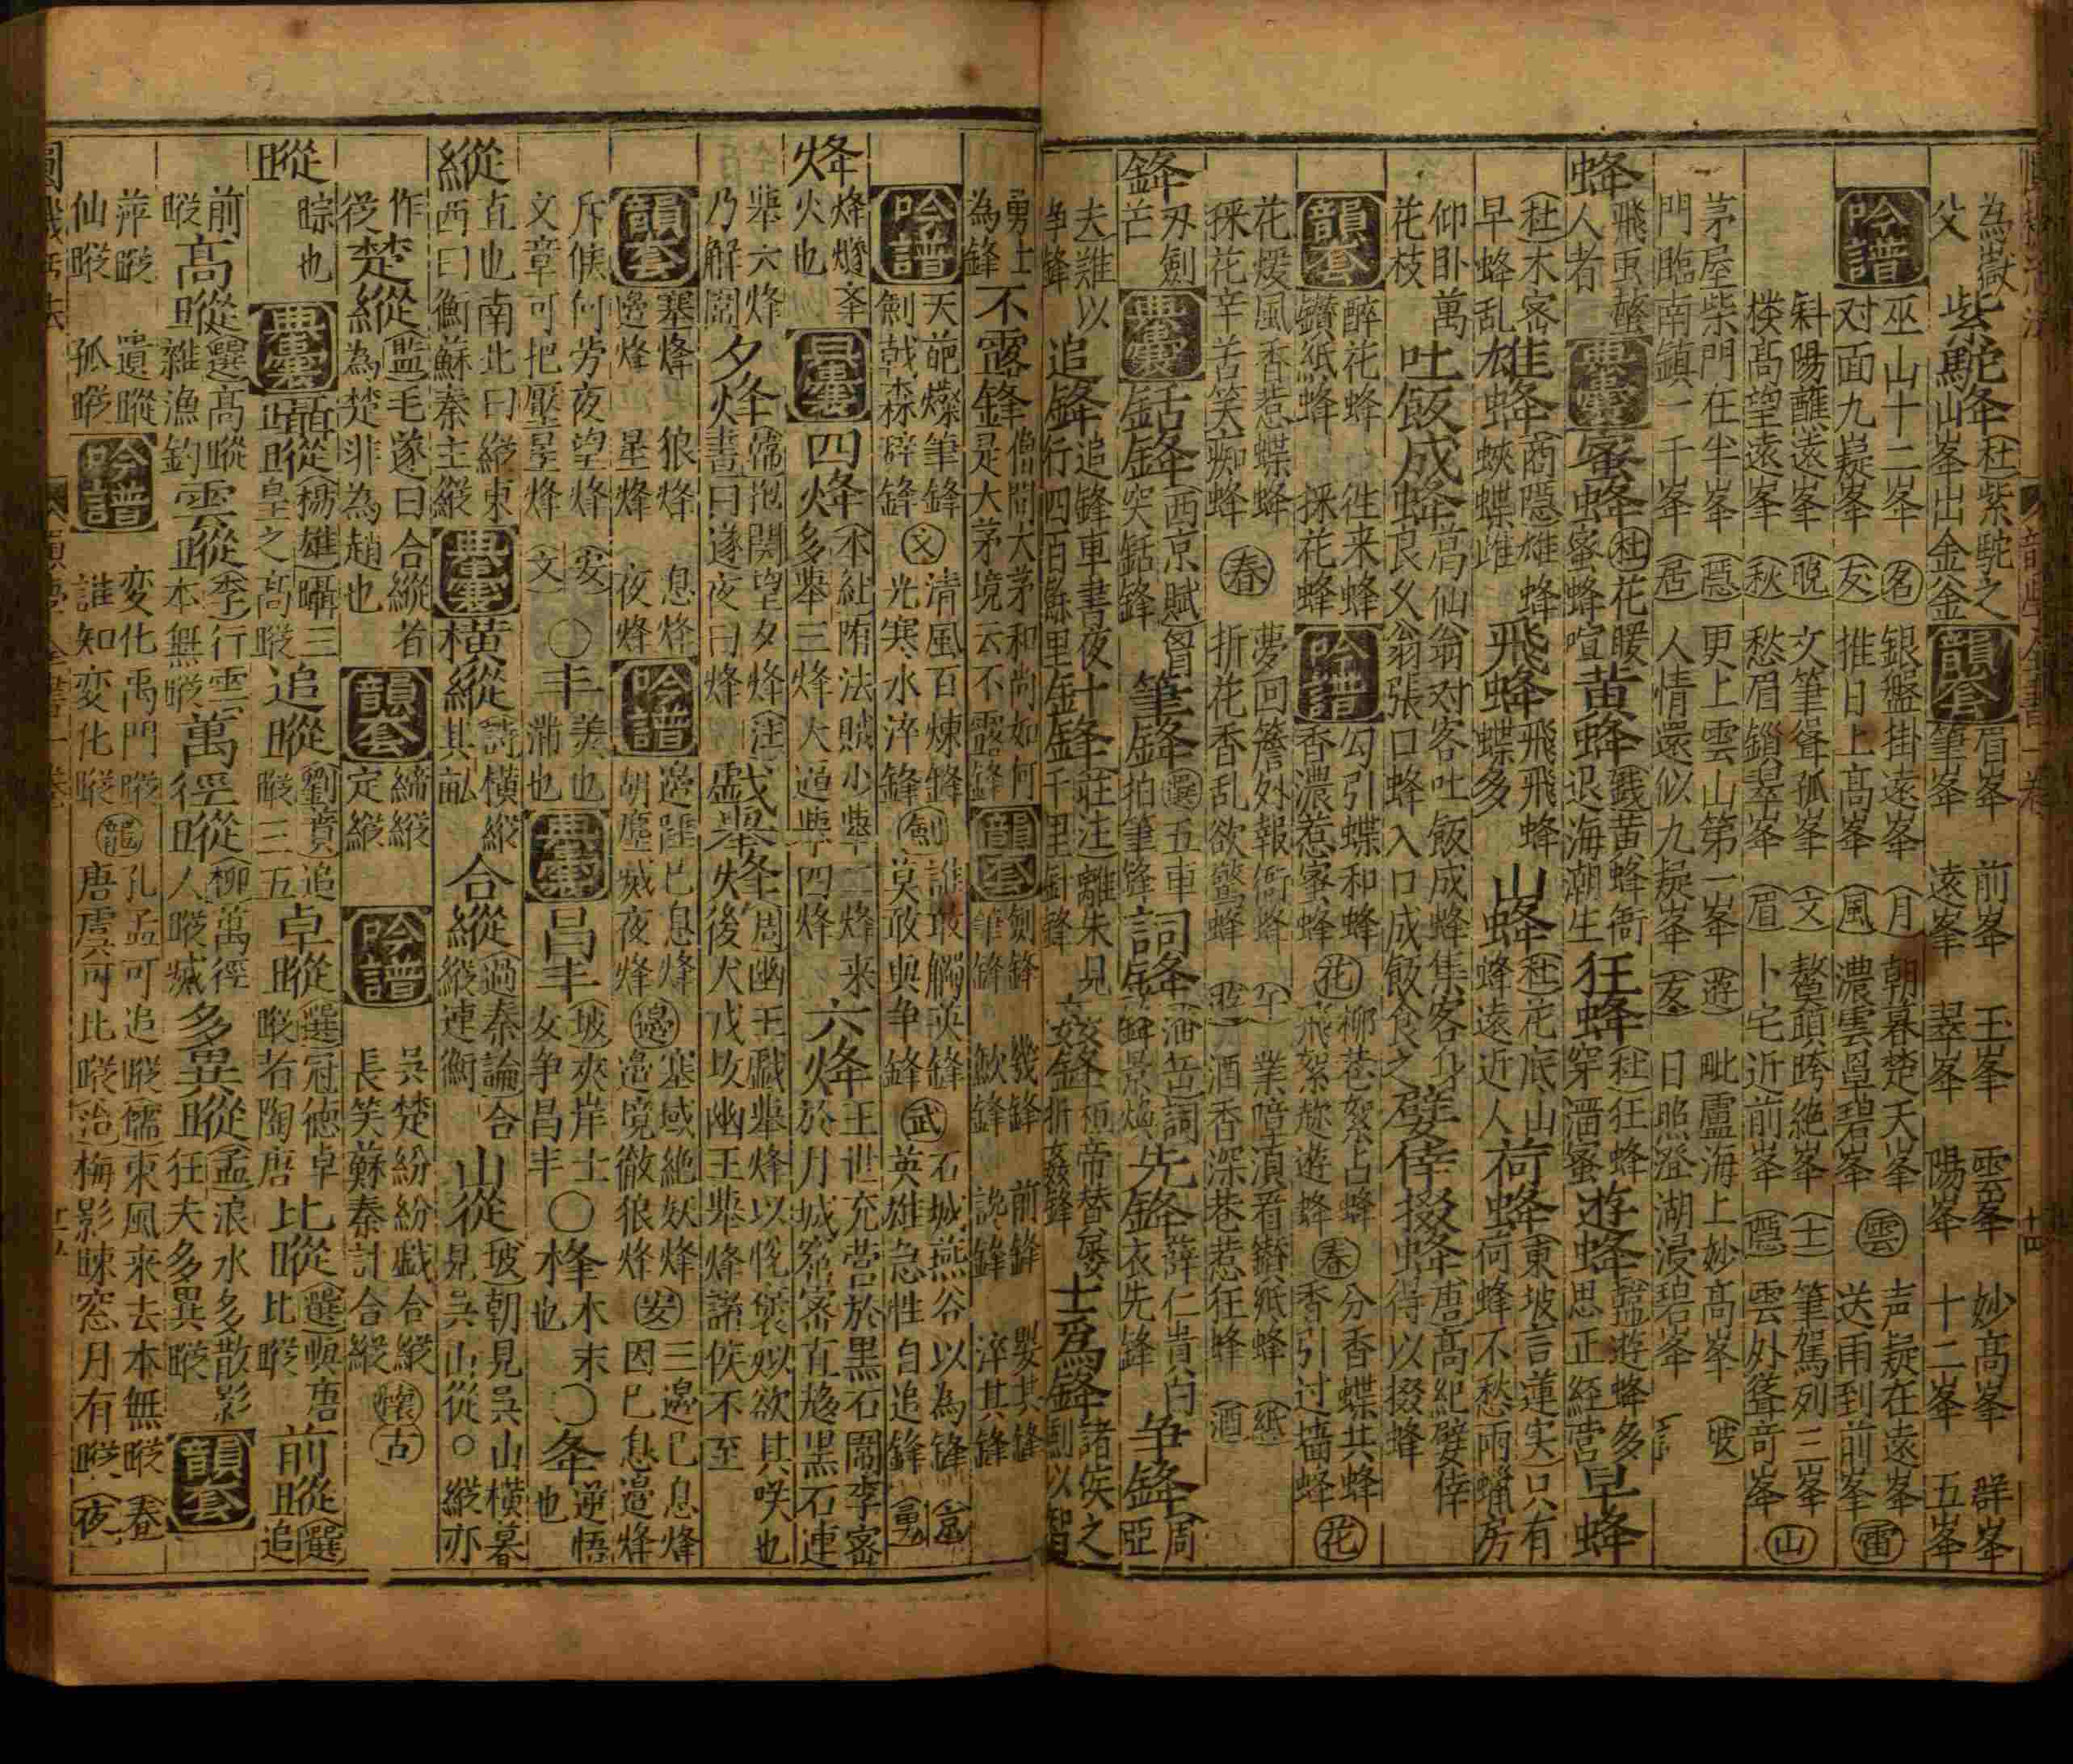 為嶽父 紫駝峰 杜 紫駝之峯出金釡 韻套 眉峯 筆峯 前峯 遠峯 玉峯 翠峯 雲峯 陽峯 妙高峯 十二峯 群峯 五峯
吟譜 巫山十二峯 对面九嶷峯 名 友 銀盤掛遠峯 推日上高峯 月 風 朝暮楚天峯 濃雲罩碧峯 雲 声疑在遠峯 送雨到前峯 雷
斜陽醮遠峯 楼高望遠峯 晚 秋 文筆聳孤峯 愁眉鎖翠峯 文 眉 鰲頭跨絶峯 卜宅近前峯 士 隱 筆駕列三峯 雲外聳奇峯 山
茅屋柴門在半峯 門臨南鎮一千峯 隱 居 更上雲山第一峯 人情還似九疑峯 遊 友 毗盧海上妙高峯 日照澄湖浸碧峯
蜂 飛虫螫人者 典囊 蜜蜂 杜 花暖蜜蜂喧 黄蜂 黄蜂衙退海潮生 狂蜂 杜 狂蜂穿酒蜜 遊蜂 監 遊蜂多思正經营 早蜂
杜 木密早蜂乱 雄蜂 商隱 雄蜂蛺蝶雌 飛蜂 飛飛蜂蝶多 山蜂 杜 花底山蜂遠近人 荷蜂 東坡言蓮实只有荷蜂不愁雨蠟房
仰卧萬花枝 吐飯成蜂 葛仙翁对客吐飯成蜂集客身良久翁張口蜂入口成飯食之 嬖倖掇蜂 唐高紀嬖倖虫得以掇蜂
韻套 醉花蜂 鑚紙蜂 徃来蜂 採花蜂 吟譜 勾引蝶和蜂 香濃惹蜜蜂 花 柳巷絮占蜂 飛絮趂遊蜂 春 分香蝶共蜂 香引过墻蜂 花
花煖風香惹蝶蜂 採花辛苦笑痴蜂 春 夢回簷外報衙蜂 折花香乱欲驚蜂 看鑚紙蜂 酒香深巷惹狂蜂 紙 酒
鋒 刃劍芒 典囊 銛鋒 西京賦 胷突銛鋒 筆鋒 選 五車拍筆鋒 詞鋒 詞鋒景煥 先鋒 薛仁貴白衣先鋒 争鋒 周亞
夫難以争鋒 追鋒 追鋒車晝夜行四百餘里 針鋒 莊注 離朱見千里針鋒 姦鋒 折姦鋒 士爲鋒 諸侯之劍以智
勇士為鋒 不露鋒 僧問大茅和尚如何是大茅境云不露鋒 韻套 劍鋒 筆鋒 幾鋒 歛鋒 前鋒 談鋒 嬰其鋒 淬其鋒
吟譜 天葩燦筆鋒 劍戟森辟鋒 文 清風百煉鋒 光寒水淬鋒 劍 誰敢觸英鋒 莫敢與争鋒 武 石城燕谷以為鋒 英雄急性自追鋒 富 勇
烽 烽燧夆火也 典囊 四烽 多舉三烽 大道舉四烽 六烽 王世充营於黒石關李密於月城密直趍黒石連
舉六烽乃解圍 夕烽 開望夕烽 注 書曰遂夜曰烽 戯舉烽火 周幽王戲舉烽以悅褒姒欲其咲也後犬戎攻幽王舉烽諸侯不至
韻套 塞烽 邊烽 狼烽 星烽 息烽 夜烽 吟譜 邊踁已息烽 胡塵滅夜烽 邊 塞域絶妖烽 邊境徹狼烽 安 三邊已息烽 因已息邊烽
斥候何劳夜望烽 文章可把壓星烽 安 文 ○丰 美也 滿也 典囊 昌丰 坡 夾岸士女争昌丰 ○桻 木末也 ○夆 逆悟也
縱 直也南北曰縱東西曰衡蘇秦主縱 典囊 橫縱 詩 橫縱其畝 合縱 過秦論 合縱連衡 山從 坡 朝見吳山橫暮見吳山從○縱亦
作從 楚縱 監 毛遂曰合縱者為楚非為趙也 韻套 締縱 定縱 吟譜 吳楚紛紛戯合縱 長笑蘇秦計合縱 懷古
蹤 踪也 典囊 躡蹤 楊雄 躡三皇之高蹤 追蹤 劉賁 追蹤三五 卓蹤 選 冠德卓蹤者陶唐 比蹤 選 比蹤唐 前蹤 選 追
前蹤 高蹤 選 高蹤雜漁釣 雲蹤 季 行雲本無蹤 萬徑蹤 柳 萬徑人蹤滅 多異蹤 孟 浪水多散影狂夫多異蹤 韻套
萍蹤 仙蹤 遺蹤 孤蹤 吟譜 变化禹門蹤 誰知变化蹤 龍 孔孟可追蹤 唐虞可比蹤 儒 治 東風来去本無蹤 梅影疎窓月有蹤 春 夜